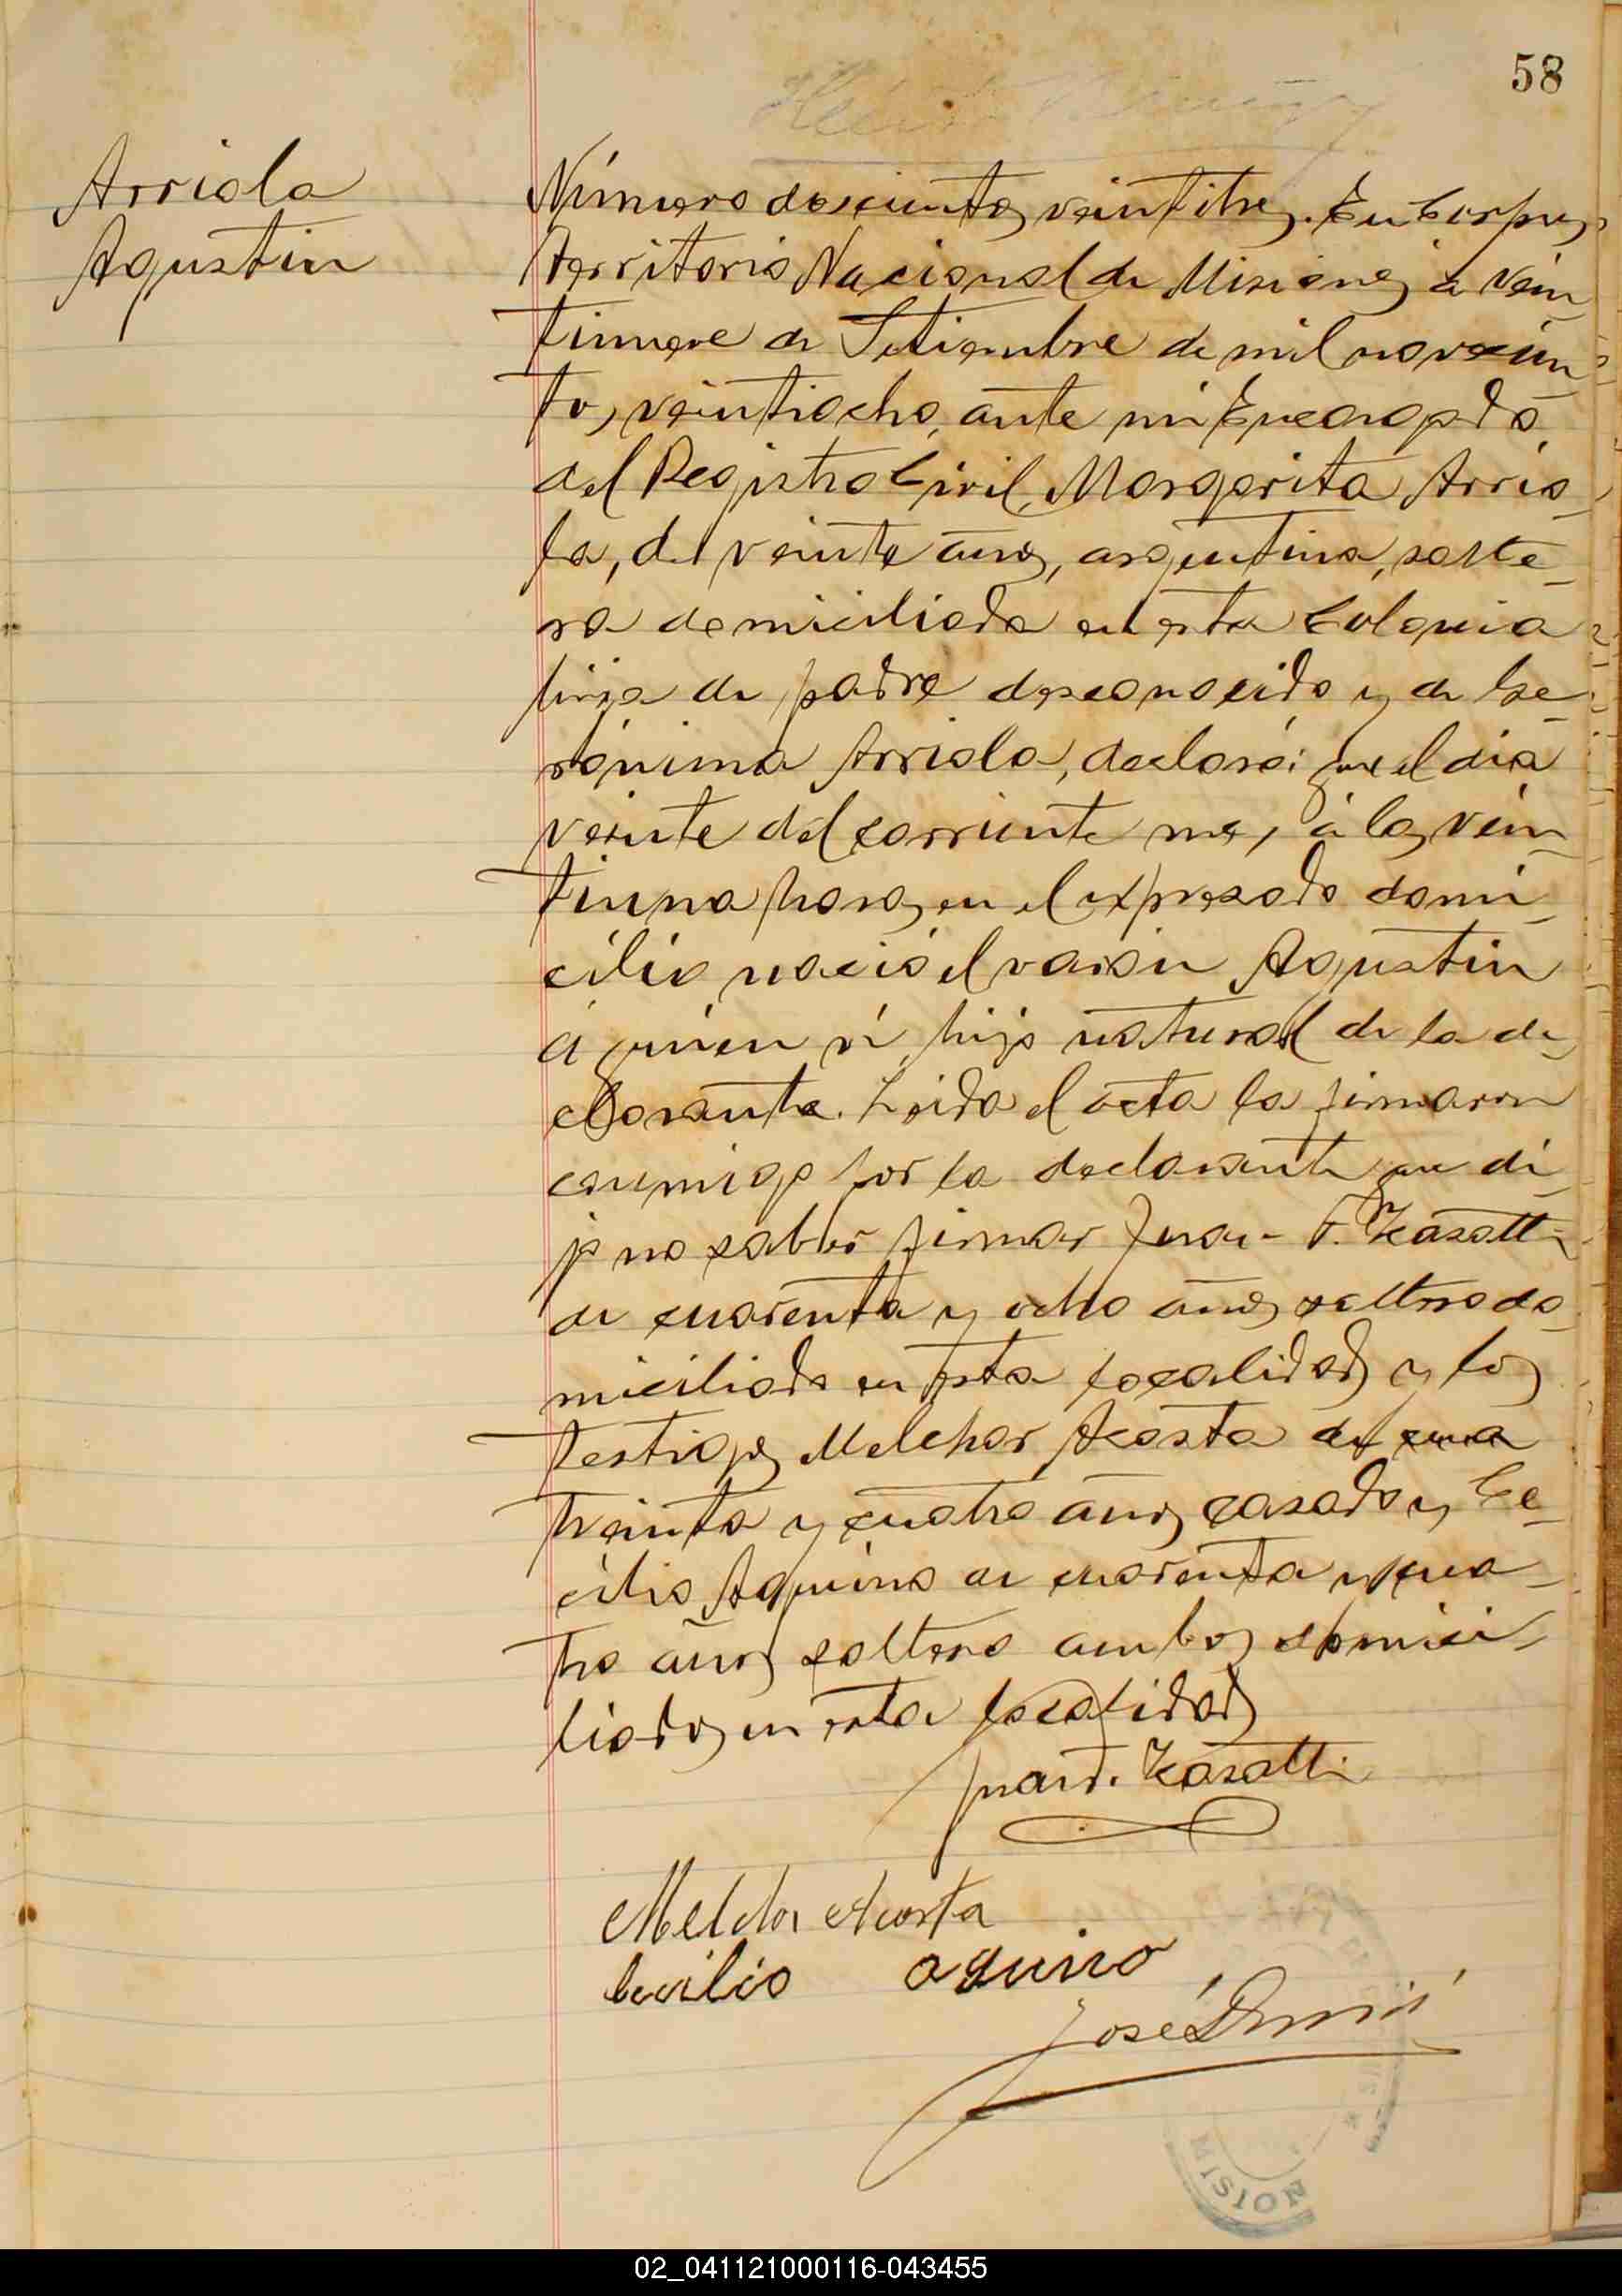 58
Arriola
Agustin
Número doscientos veintitres. En Corpus
Territorio Nacional de Misiones á vein
tinueve de Setiembre de mil novecien
tos veintiocho, ante mi Encargado
del Registro Civil, Margarita Arrio
la, de veinte años, argentina, solte
ra domiciliada en esta Colonia
hija de padre desconocido y de Ge
rónima Arriola, declaró: que el dia
veinte del corriente mes, á las vein
tiuna horas en el expresado domi
cilio nació el varón Agustin
á quien ví hijo natural de la de
clarante. Leida el acta la firmaron
conmigo por la declarante que di
jo no saber firmar Juan T. Kasatti
de cuarenta y ocho años soltero do
miciliado en esta localidad y los
testigos Melchor Acosta de cua
treinta y cuatro años casado y Ce
cilio Aquino de cuarenta y cua
tro años soltero ambos domici
liados en esta localidad
Juan T. Kasatti
Melchor Acosta
Cecilio aquino
José
MISIONE
02_041121000116-043455